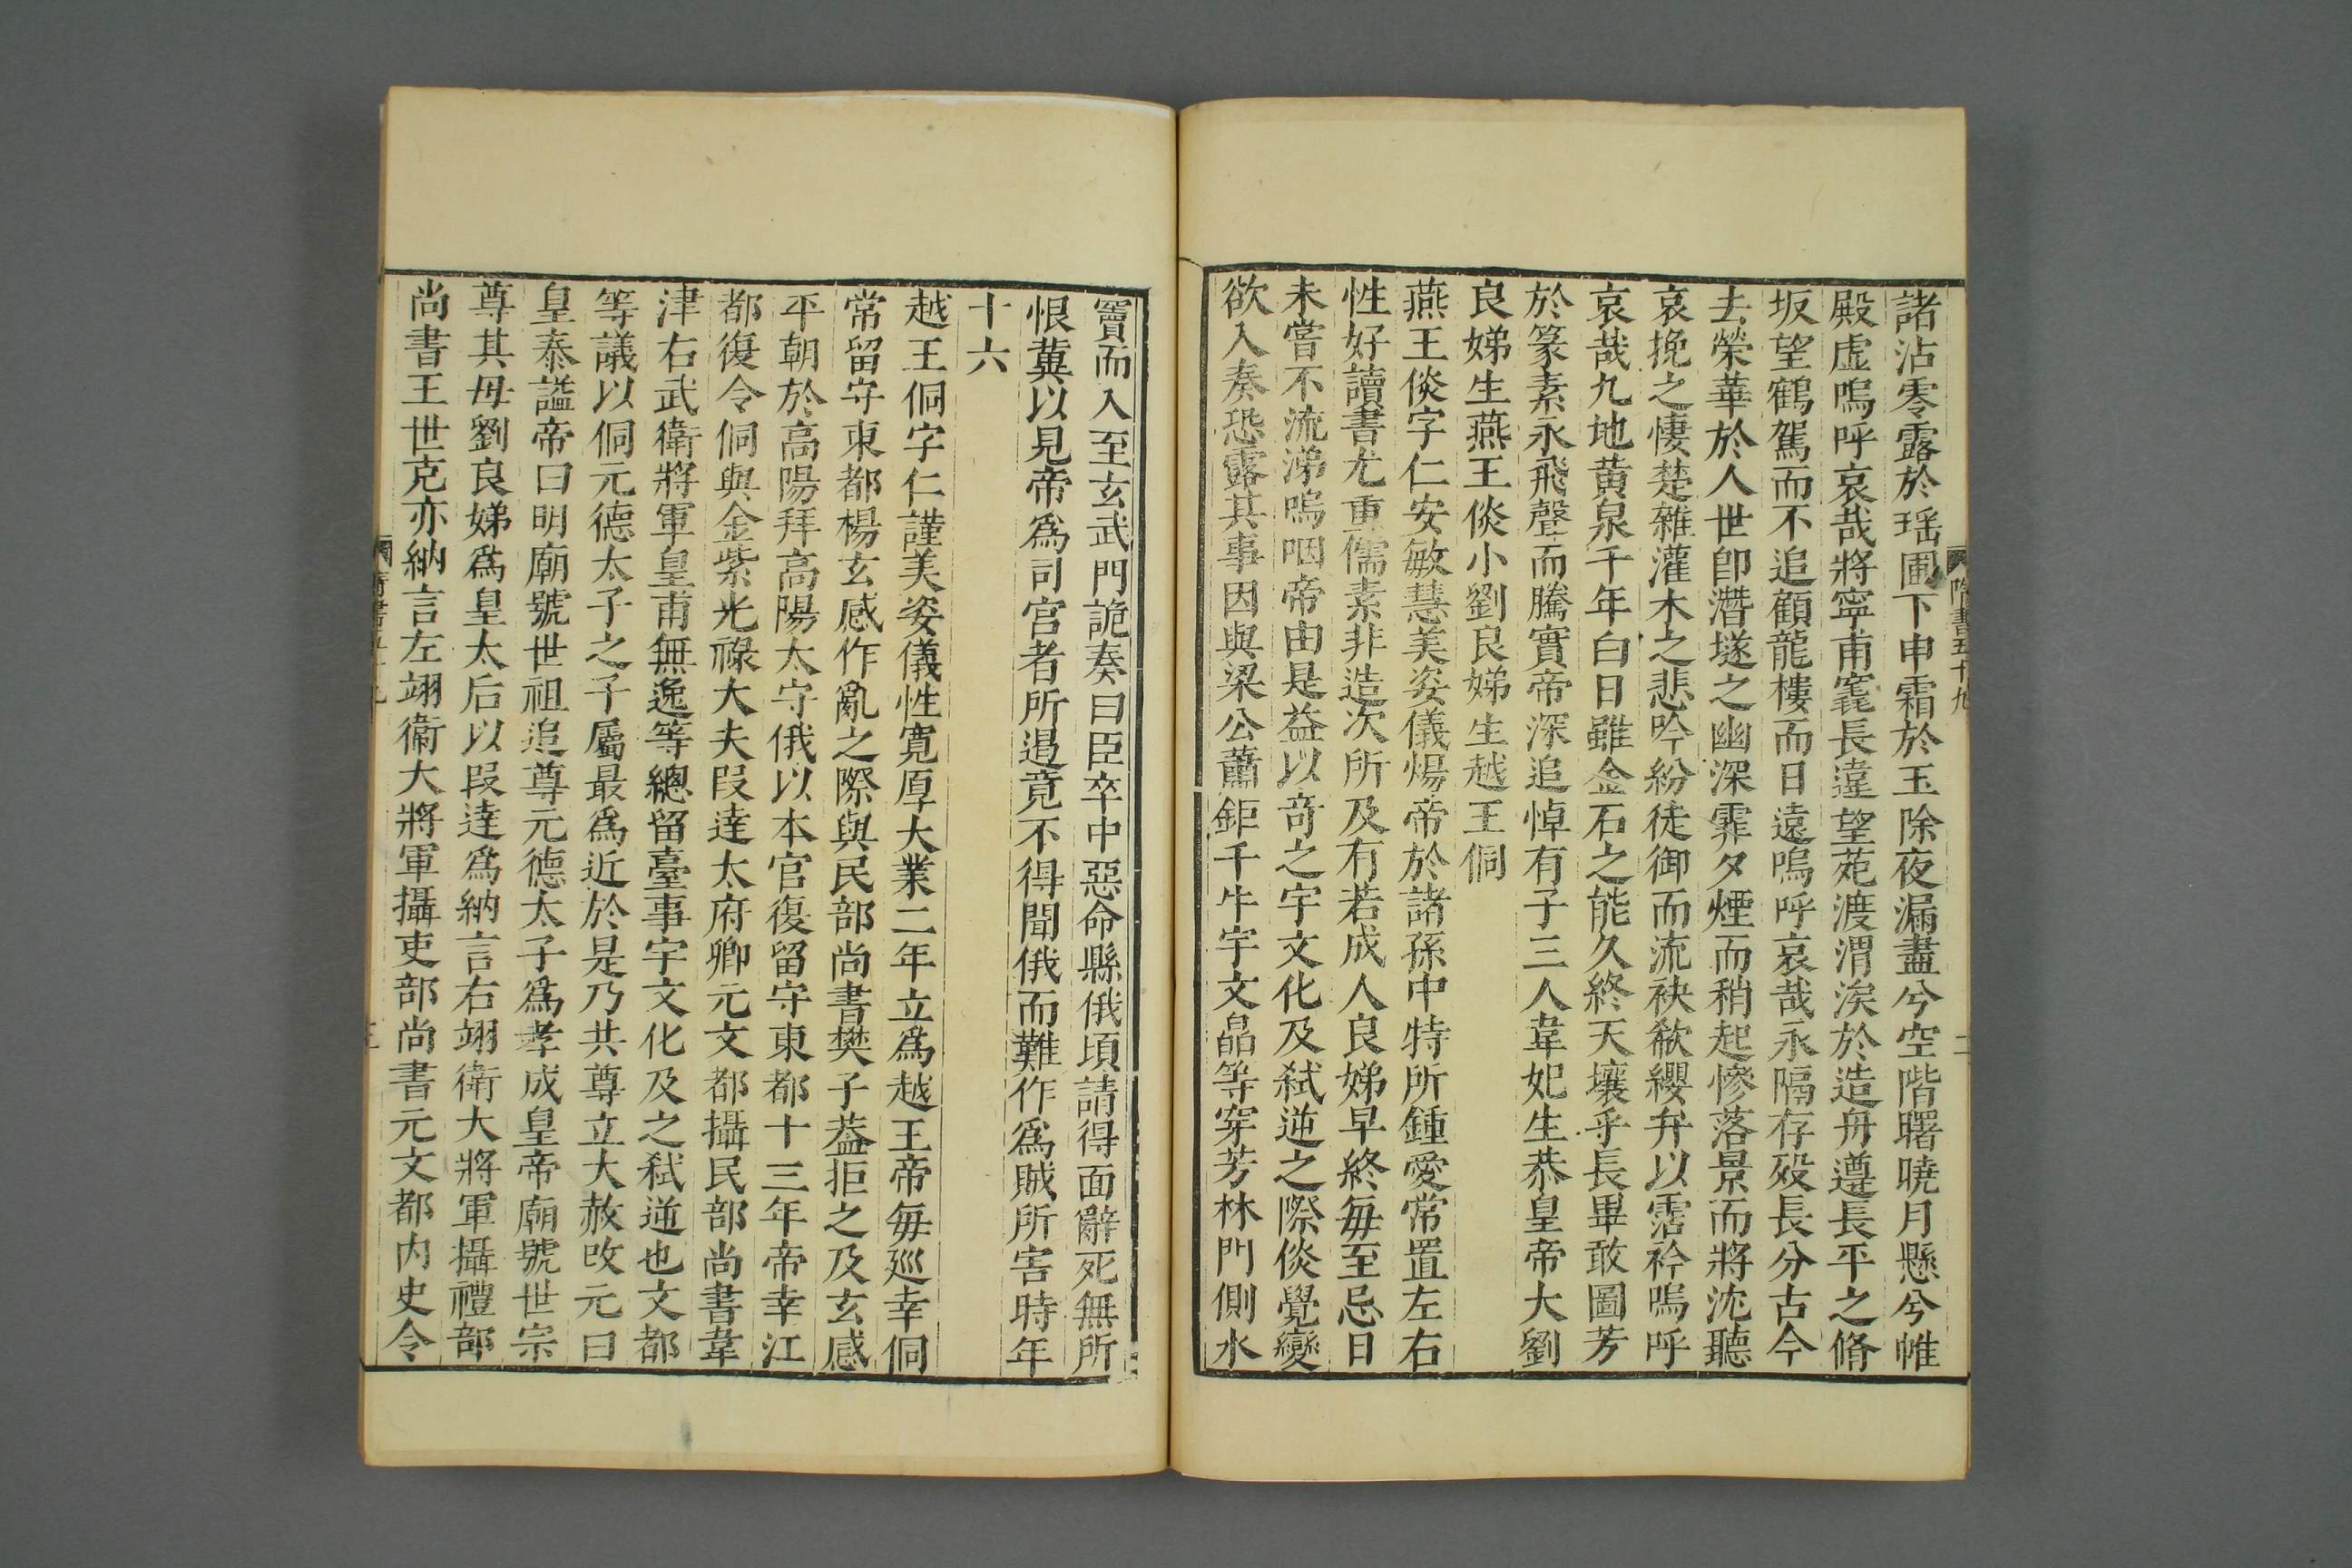 諸沾零露於瑶圃下申霜於玉除夜漏盡兮空階曙曉月懸兮帷
殿虚嗚呼哀哉將寧甫竁長違望苑渡渭涘於造舟遵長平之脩
坂望鶴駕而不追顧龍樓而日遠嗚呼哀哉永隔存殁長分古今
去榮華於人世卽潛墜之幽深霏夕煙而稍起慘落景而將沈聽
哀挽之悽楚雜灌木之悲吟紛徒御而流袂欷纓弁以霑衿嗚呼
哀哉九地黄泉千年白日雖金石之能久終天壤乎長畢敢圖芳
於篆素永飛聲而騰實帝深追悼有子三人韋妃生恭皇帝大劉
良娣生燕王倓小劉良娣生越王侗
燕王倓字仁安敏慧美姿儀煬帝於諸孫中特所鍾愛常置左右
性好讀書尤重儒素非造次所及有若成人良娣早終毎至忌日
未嘗不流涕嗚咽帝由是益以竒之宇文化及弑逆之際倓覺變
欲入奏恐露其事因與梁公蕭鉅千牛宇文皛等穿芳林門側水
隋書五十九
二
竇而入至玄武門詭奏曰臣卒中惡命縣俄頃請得面辭死無所
恨冀以見帝爲司宫者所遏竟不得聞俄而難作爲賊所害時年
十六
越王侗字仁謹美姿儀性寛厚大業二年立爲越王帝毎巡幸侗
常留守東都楊玄感作亂之際與民部尚書樊子葢拒之及玄感
平朝於高陽拜高陽太守俄以本官復留守東都十三年帝幸江
都復令侗與金紫光禄大夫段達太府卿元文都攝民部尚書韋
津右武衛將軍皇甫無逸等總留臺事宇文化及之弑逆也文都
等議以侗元德太子之子屬最爲近於是乃共尊立大赦改元曰
皇泰謚帝曰明廟號世祖追尊元德太子爲孝成皇帝廟號世宗
尊其母劉良娣爲皇太后以段達爲納言右翊衛大將軍攝禮部
尚書王世充亦納言左翊衛大將軍攝吏部尚書元文都内史令